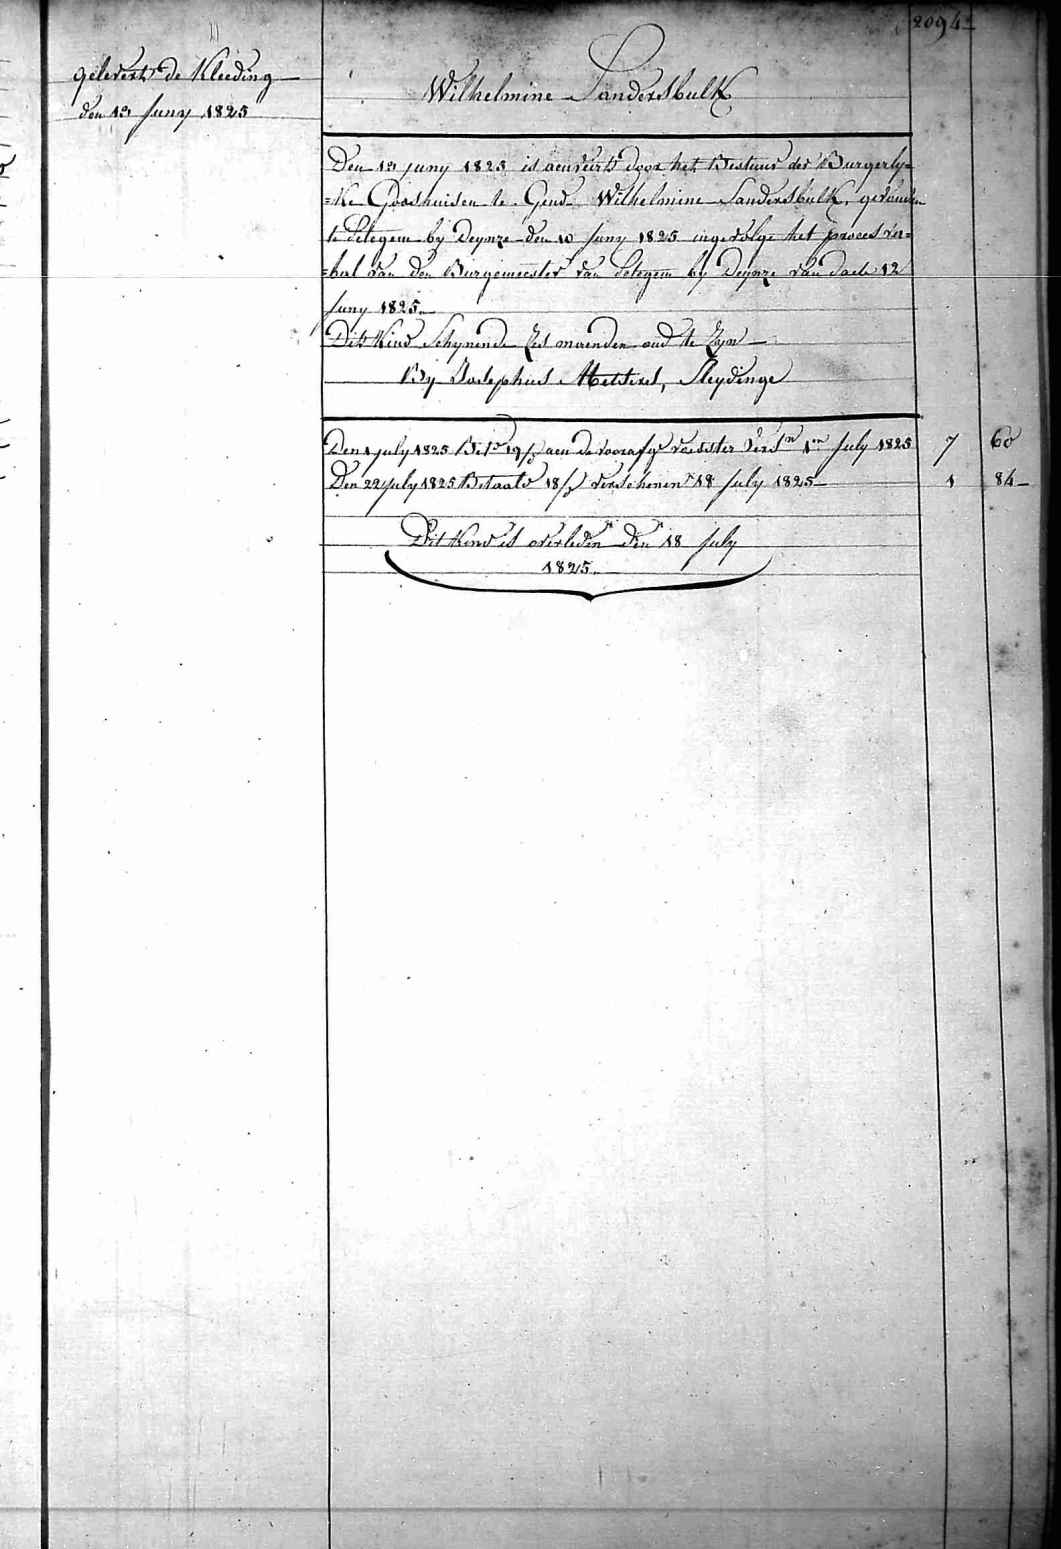 2094
gelevert de Kleeding
den 13 Juny 1825
Wilhelmine Landersbulk
Den 13 juny 1825 is aenveirt door het Bestuur der Burgerly=
=ke Godshuisen te Gend Wilhelmine Landersbulk, gevonden
te Petegem by Deynze den 10 Juny 1825 ingevolge het proces ver=
=bal van den Burgemeester van Petegem by Deynze van daete 12
Juny 1825.
Dit Kind Schynende Zes maenden oud te Zyn
By Josephus Metsers, Sleydinge
Den 1 july 1825 Bet aen de voorafg voedster Vers 1en July 1825 7 60
Den 22 july 1825 Betaald 18/ verschenen 18 July 1825 1 84
Dit Kind is overleden den 18 July
1825.